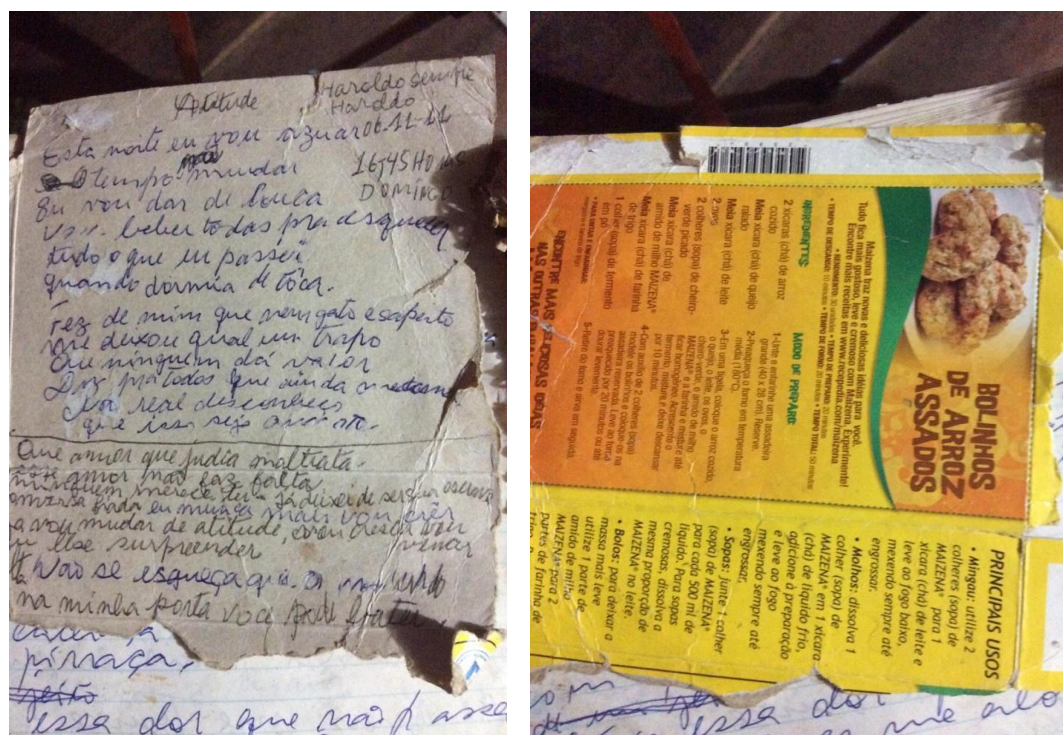 Atitude
Haroldo sempre
Haroldo
06-11-11
16:45 Horas
DOMINGO
Esta noite eu vou azuar
O tempo mudar
Eu vou dar de louca
vou beber todas pra esquecer
tudo o que eu passei
quando dormia de tôca.
Fez de mim que nem gato e sapato
me deixou qual um trapo
Que ninguém dá valor
Diz pra todos que ainda
por real desconheço
que isso seja
Que amor que judia maltrata.
amor não faz falta
ninguém merece ter já deixei de ser sua escrava
eu nunca mais vou ser
vou mudar de atitude, vou
surpreender
Não se esqueça que o
na minha porta você pode bater
pirraça,
jeito
essa dor que não passa
BOLINHOS
DE ARROZ
ASSADOS
Maizena traz novas e deliciosas idéias para você.
Tudo fica mais gostoso, leve e cremoso com Maizena. Experimente!
Encontre mais receitas em www.recepedia.com/maizena
• RENDIMENTO: 30 unidades • TEMPO DE PREPARO: 20 minutos
• TEMPO DE DESCANSO: 10 minutos • TEMPO DE FORNO: 20 minutos • TEMPO TOTAL: 50 minutos
INGREDIENTES:
2 xícaras (chá) de arroz
cozido
Meia xícara (chá) de queijo
ralado
Meia xícara (chá) de leite
2 ovos
2 colheres (sopa) de cheiro-
verde picado
Meia xícara (chá) de
amido de milho MAIZENA®
Meia xícara (chá) de farinha
de trigo
1 colher (sopa) de fermento
em pó
MODO DE PREPARO:
1-Unte e enfarinhe uma assadeira
grande (40 x 28 cm). Reserve.
2-Preaqueça o forno em temperatura
média (180°C).
3-Em uma tigela, coloque o arroz cozido,
o queijo, o leite, os ovos, o
cheiro-verde, o amido de milho
MAIZENA® e a farinha e misture até
ficar homogêneo. Acrescente o
fermento, misture e deixe descansar
por 10 minutos.
4-Com auxílio de 2 colheres (sopa)
modele os bolinhos e coloque-os na
assadeira reservada. Leve ao forno
preaquecido por 20 minutos ou até
dourar levemente.
5-Retire do forno e sirva em seguida.
ENCONTRE MAIS DELICIOSAS IDEIAS
NAS OUTRAS
PRINCIPAIS USOS
• Mingau: utilize 2
colheres (sopa) de
MAIZENA® para 1
xícara (chá) de leite e
leve ao fogo baixo,
mexendo sempre até
engrossar.
• Molhos: dissolva 1
colher (sopa) de
MAIZENA® em 1 xícara
(chá) de líquido frio,
adicione à preparação
e leve ao fogo
mexendo sempre até
engrossar.
• Sopas: junte 1 colher
(sopa) de MAIZENA®
para cada 500 ml de
líquido. Para sopas
cremosas, dissolva a
mesma proporção de
MAIZENA® no leite.
• Bolos: para deixar a
massa mais leve
utilize 1 parte de
amido de milho
MAIZENA® para 2
partes de farinha de
essa dor